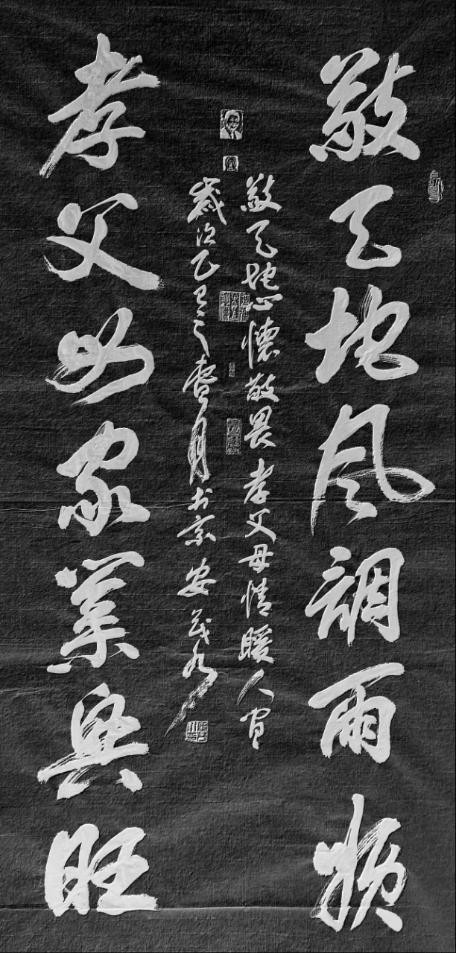 敬天地風調雨順
敬天地心懷敬畏孝父母情暖人间
歲次乙巳之壹月书京安
孝父母家業興旺